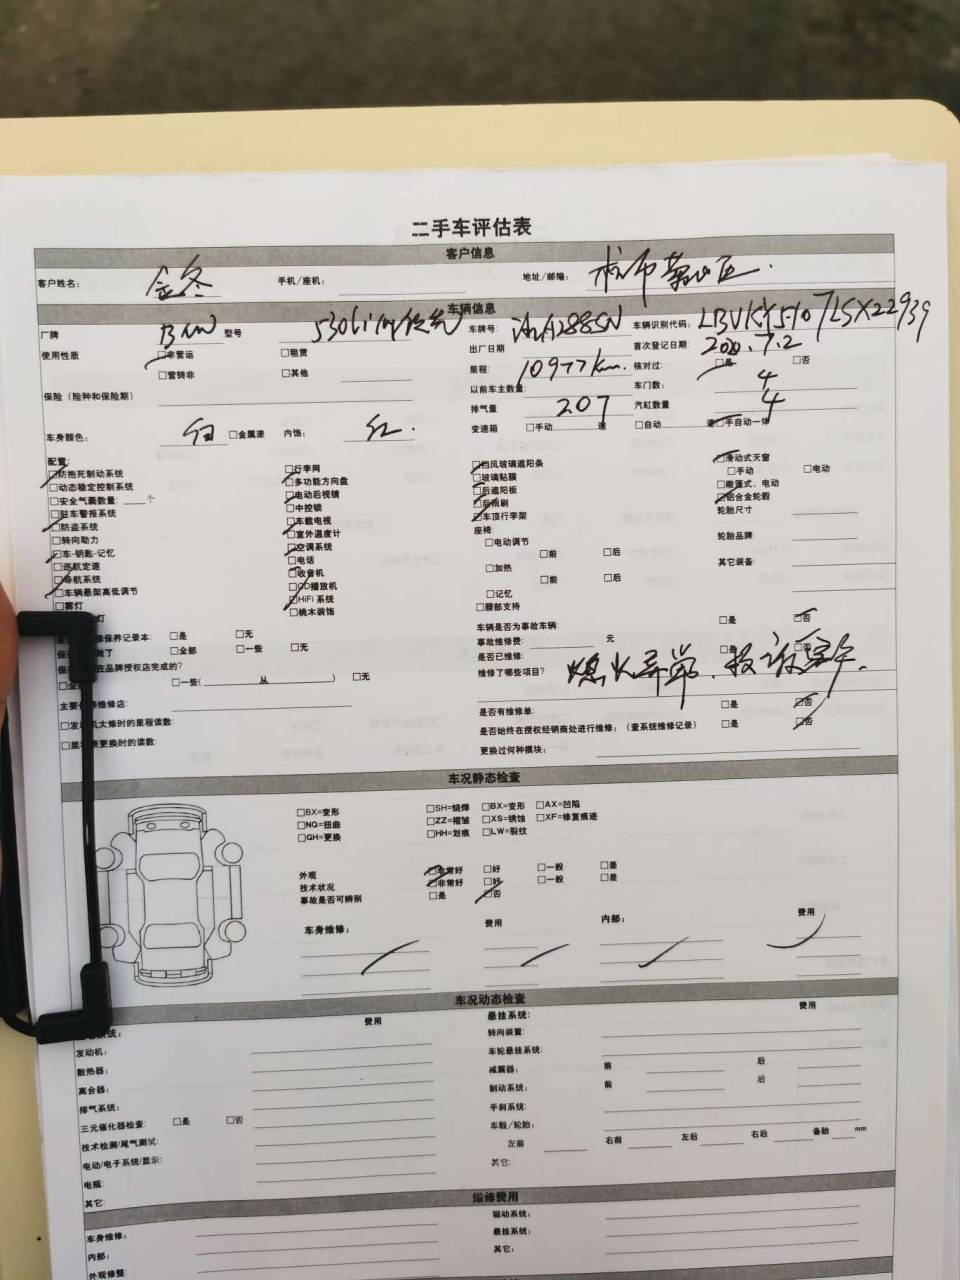 二手车评估表
客户信息
客户姓名： 金冬 手机/座机： 地址/邮编： 杭市萧山区.
车辆信息
厂牌 BMW 型号 530Li 车牌号： A288SN 车辆识别代码：
使用性质 □非营运 □租赁 出厂日期 首次登记日期： 2020.7.2
□营转非 □其他 里程： 10977km. 核对过： □是 □否
保险（险种和保险期） 以前车主数量 车门数： 4
排气量 2.0T 汽缸数量 4
车身颜色： 白 □金属漆 内饰： 红 变速箱 □手动 速 □自动 速 □手自动一体
配置：
□防抱死制动系统
□动态稳定控制系统
□安全气囊数量：____个
□驻车警报系统
□防盗系统
□转向助力
□车-钥匙-记忆
□巡航定速
□导航系统
□车辆悬架高低调节
□雾灯
灯
□行李网
□多功能方向盘
□电动后视镜
□中控锁
□车载电视
□室外温度计
□空调系统
□电话
□收音机
□CD播放机
□HiFi 系统
□桃木装饰
□挡风玻璃遮阳条
□玻璃贴膜
□后遮阳板
□后雨刷
□车顶行李架
座椅：
□电动调节
□前 □后
□加热
□前 □后
□记忆
□腰部支持
□滑动式天窗
□手动 □电动
□敞篷式，电动
□铝合金轮毂
轮胎尺寸
轮胎品牌
其它装备：
修保养记录本： □是 □无
做了 □全部 □一些 □无
在品牌授权店完成的?
□一些( 从 ) □无
主要 维修店：
□发 机大修时的里程读数：
□里 表更换时的读数：
车辆是否为事故车辆： □是 □否
事故维修费： 元
是否已维修： □是 □否
维修了哪些项目? 熄火异常，投诉
是否有维修单： □是 □否
是否始终在授权经销商处进行维修：（查系统维修记录） □是 □否
更换过何种模块：
车况静态检查
□BX=变形 □SH=烧焊 □BX=变形 □AX=凹陷
□NQ=扭曲 □ZZ=褶皱 □XS=锈蚀 □XF=修复痕迹
□GH=更换 □HH=划痕 □LW=裂纹
外观 □非常好 □好 □一般 □差
技术状况 □非常好 □好 □一般 □差
事故是否可辨别 □是 □否
车身维修： 费用 内部： 费用
车况动态检查
系统： 费用 悬挂系统： 费用
发动机： 转向装置：
散热器： 车轮悬挂系统：
离合器： 减震器： 前 后
排气系统： 制动系统： 前 后
三元催化器检查： □是 □否 手刹系统：
技术检测/尾气测试： 车毂/轮胎：
电动/电子系统/显示： 左前 右前 左后 右后 备胎 mm
电瓶： 其它：
其它：
维修费用
车身维修： 驱动系统：
内部： 悬挂系统：
外观修整 其它：